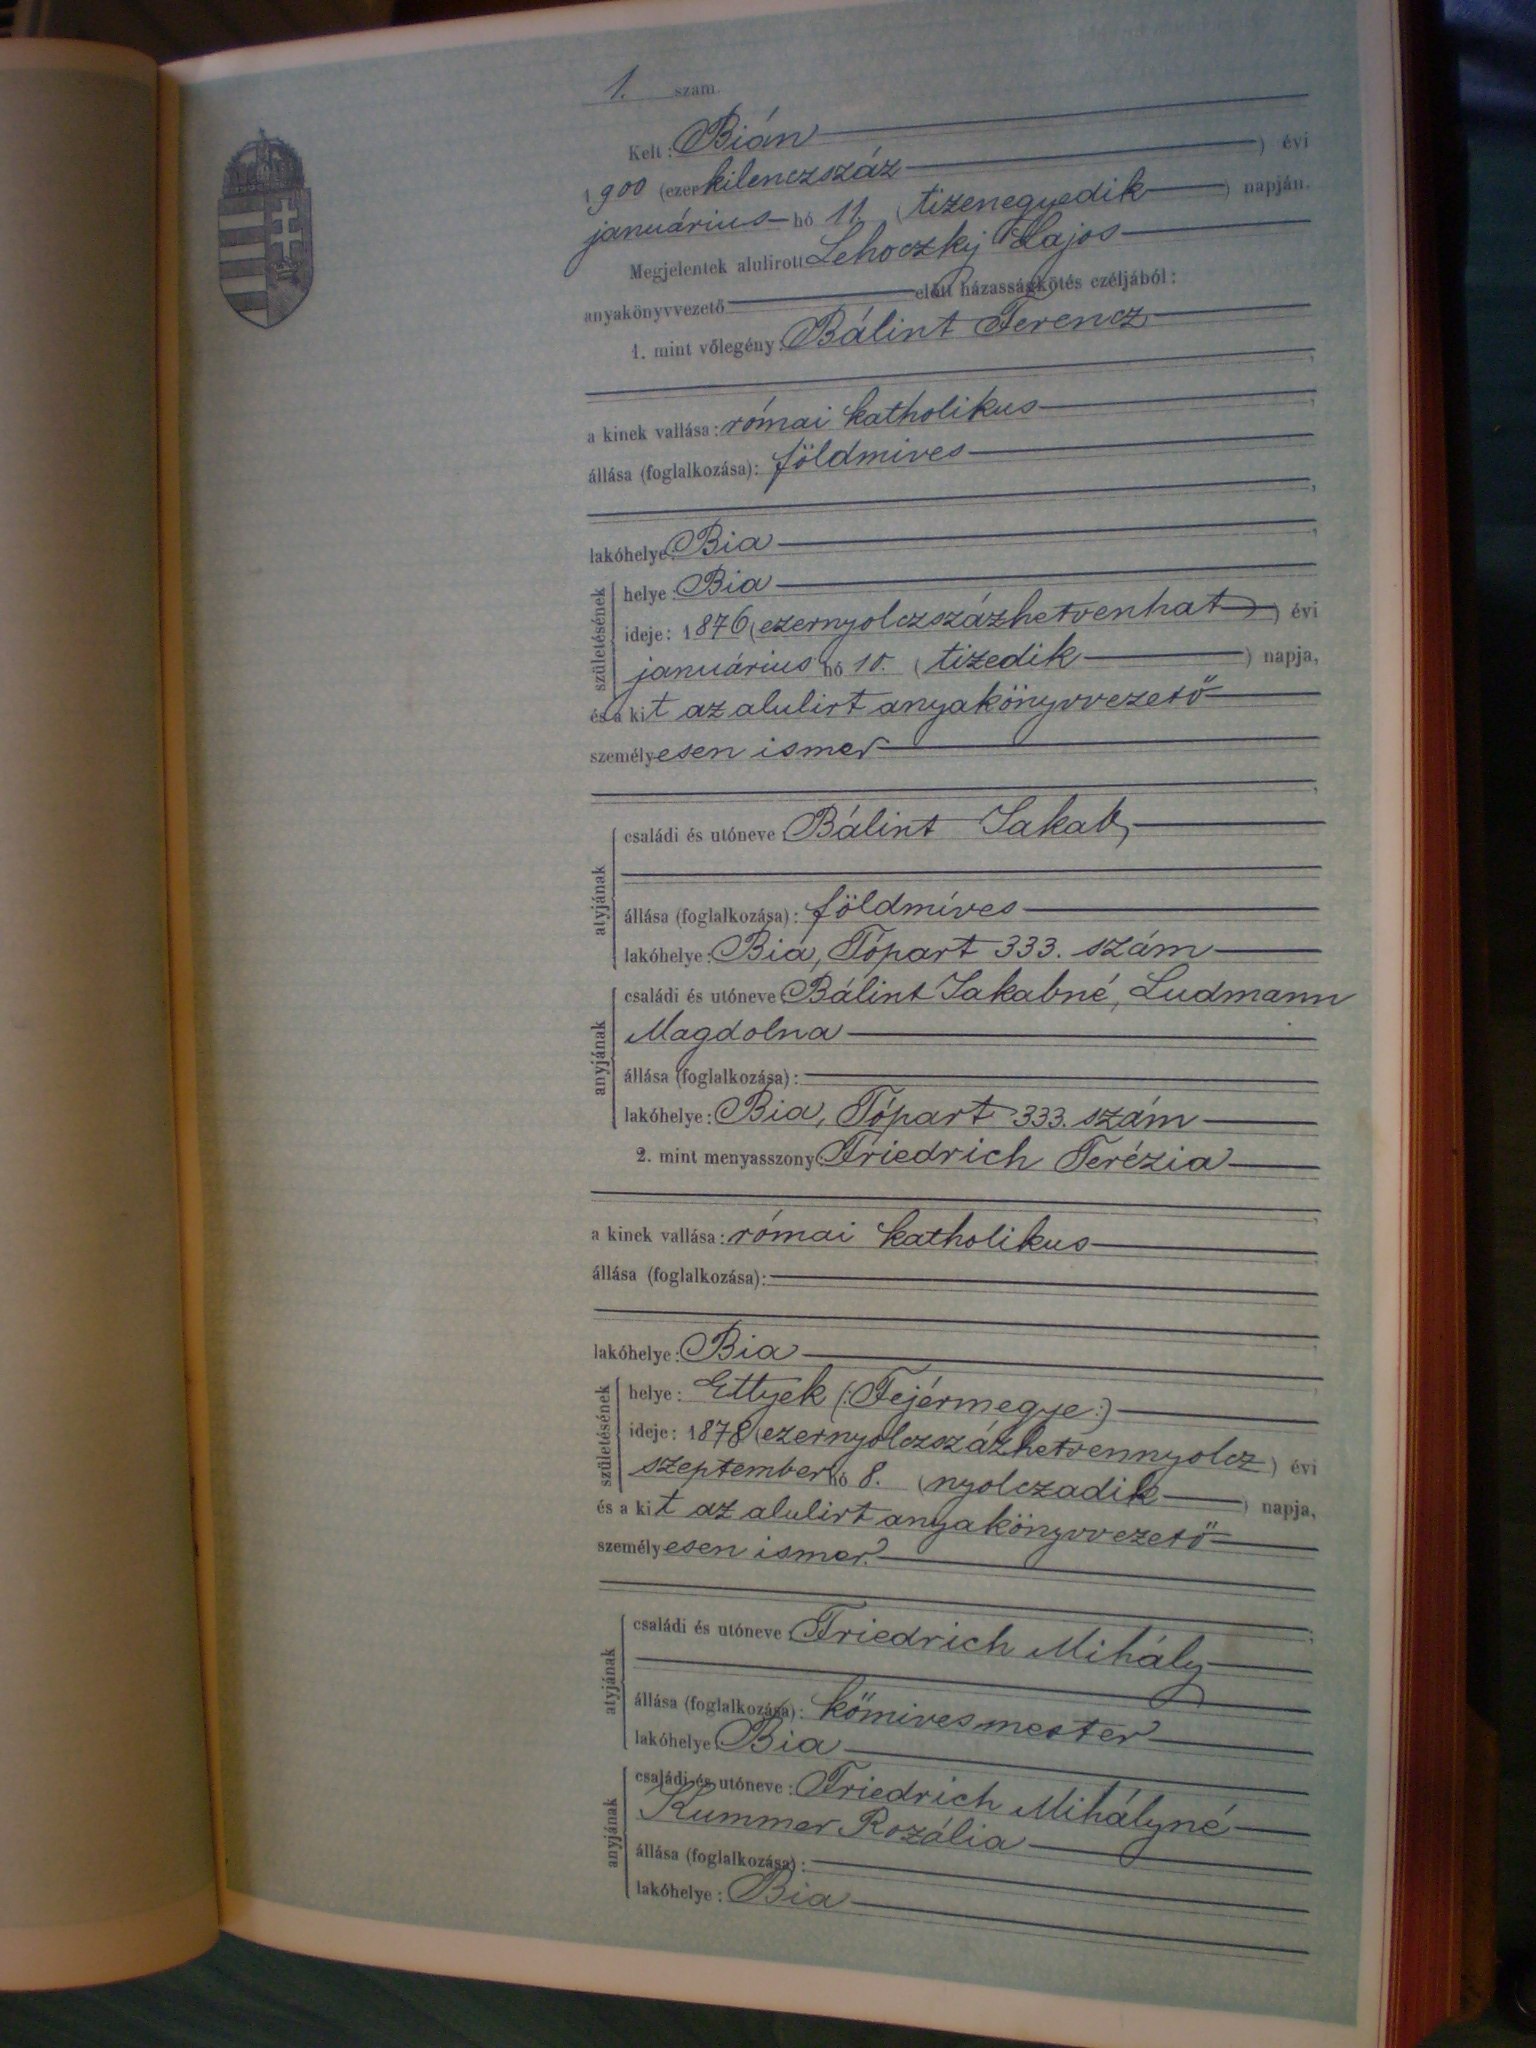 1. szám.
Kelt: Bián
1900 (ezerkilenczszáz) évi
januárius hó 11. (tizenegyedik) napján.
Megjelentek alulirott Lehoczky Lajos
anyakönyvvezető előtt házasságkötés czéljából:
1. mint vőlegény: Bálint Ferencz
a kinek vallása: római katholikus
állása (foglalkozása): földmives
lakóhelye: Bia
születésének
helye: Bia
ideje: 1876 (ezernyolczszázhetvenhat) évi
januárius hó 10. (tizedik) napja,
és a kit az alulirt anyakönyvvezető
személyesen ismer
atyjának
családi és utóneve: Bálint Jakab,
állása (foglalkozása): földmíves
lakóhelye: Bia, Tópart 333. szám
anyjának
családi és utóneve: Bálint Jakabné, Ludmann
Magdolna
állása (foglalkozása):
lakóhelye: Bia, Tópart 333. szám
2. mint menyasszony: Friedrich Terézia
a kinek vallása: római katholikus
állása (foglalkozása):
lakóhelye: Bia
születésének
helye: Ettyek (:Fejérmegye:)
ideje: 1878 (ezernyolczszázhetvennyolcz) évi
szeptember hó 8. (nyolczadik) napja,
és a kit az alulirt anyakönyvvezető
személyesen ismer.
atyjának
családi és utóneve: Friedrich Mihály
állása (foglalkozása): kőmivesmester
lakóhelye: Bia
anyjának
családi és utóneve: Friedrich Mihályné
Kummer Rozália
állása (foglalkozása):
lakóhelye: Bia